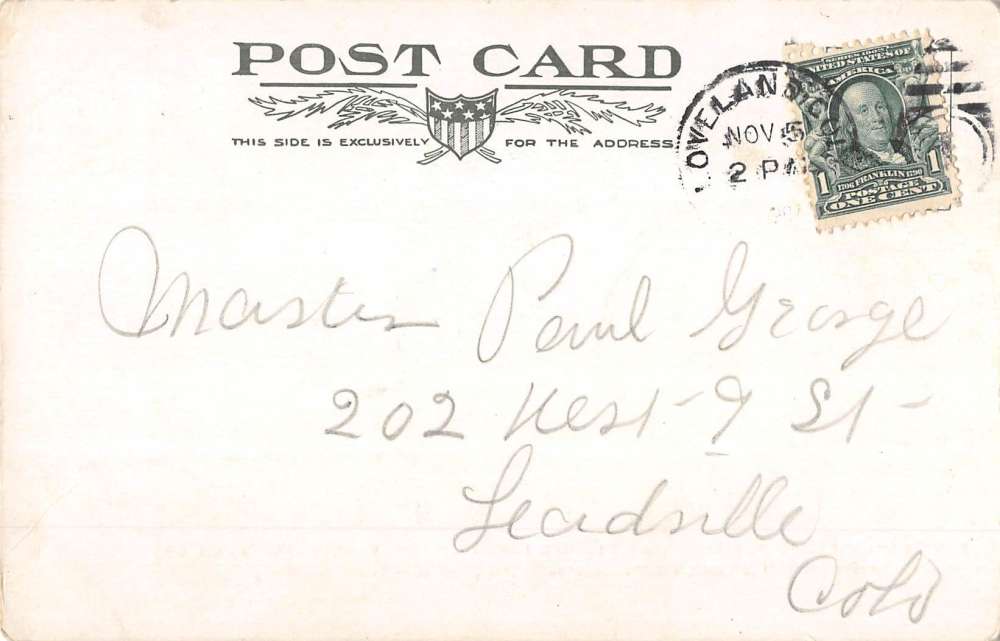 POST CARD
THIS SIDE IS EXCLUSIVELY FOR THE ADDRESS
LOVELAND, COLO.
NOV 5
2 PM
SERIES 1902
UNITED STATES OF
AMERICA
1706 FRANKLIN 1790
1 POSTAGE 1
ONE CENT
Master Paul George
202 West - 9 St -
Leadville
Colo